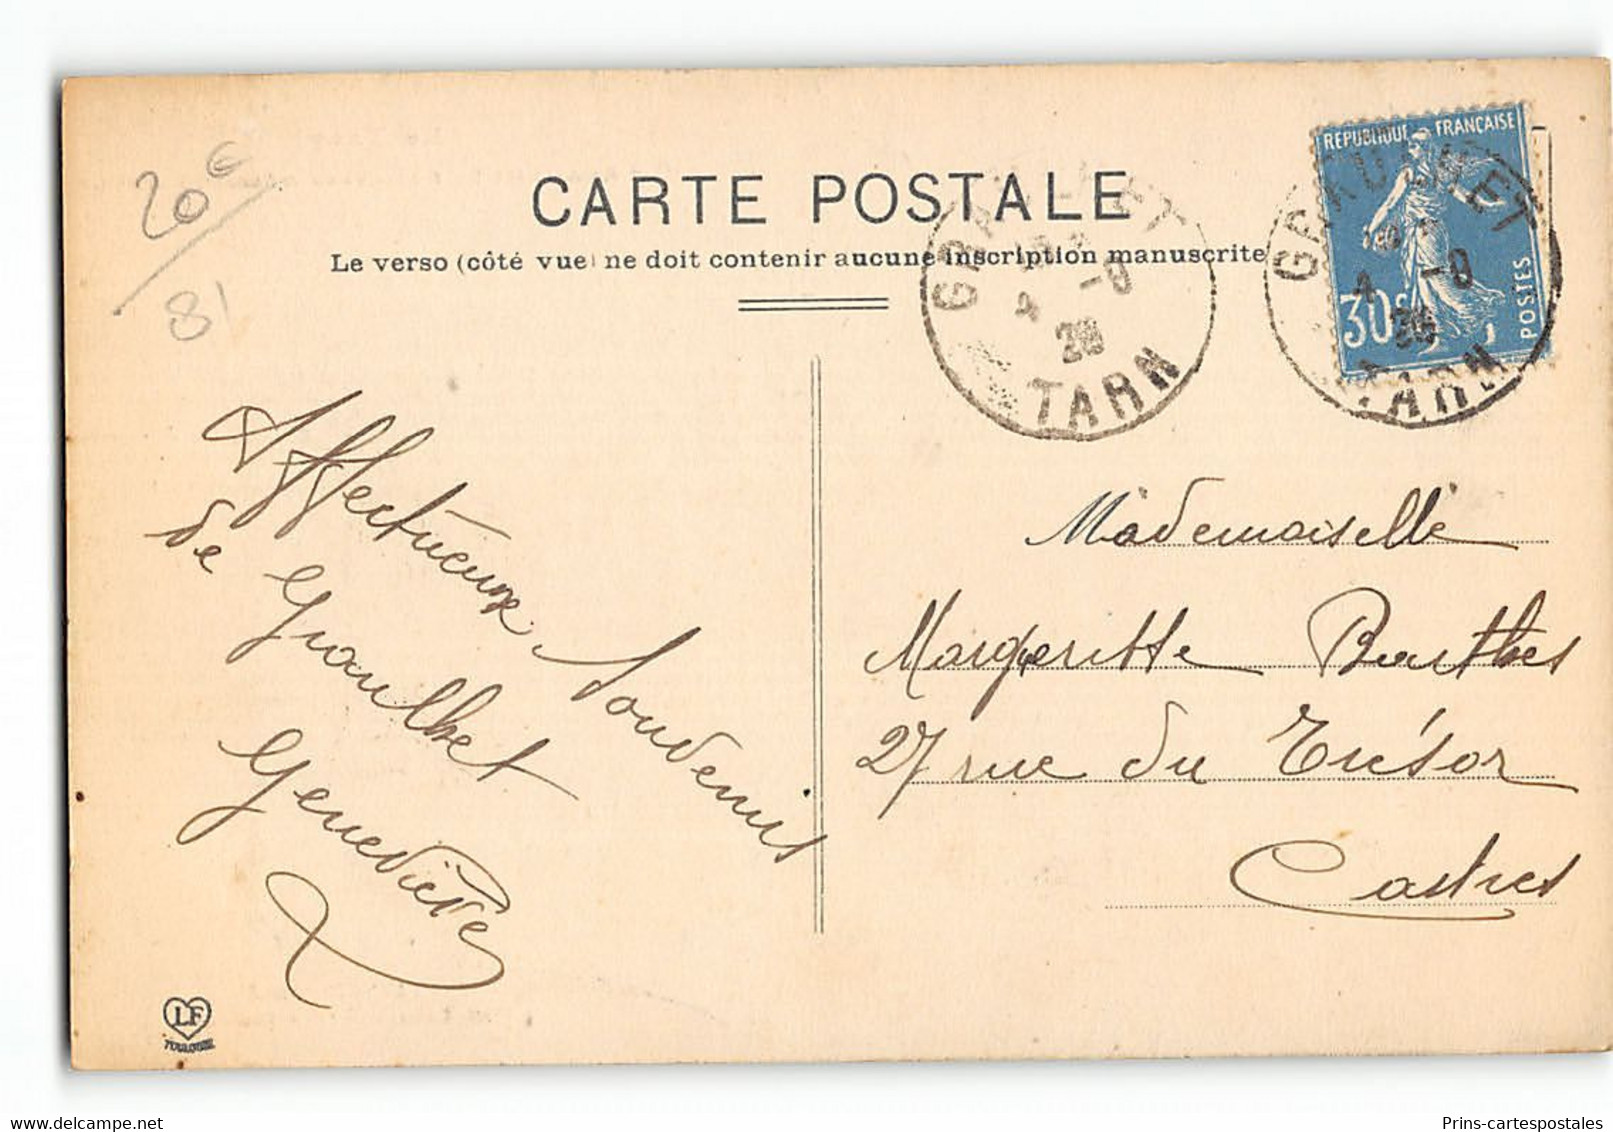 20€
81
CARTE POSTALE
Le verso (côté vue) ne doit contenir aucune inscription manuscrite
RÉPUBLIQUE FRANÇAISE
30c
POSTES
GRAULHET
TARN
GRAULHET
TARN
Affectueux Souvenirs
de Graulhet
Geneviève
Mademoiselle
Margueritte Barthes
27 rue du Trésor
Castres
LF
TOULOUSE
Prins-cartespostales